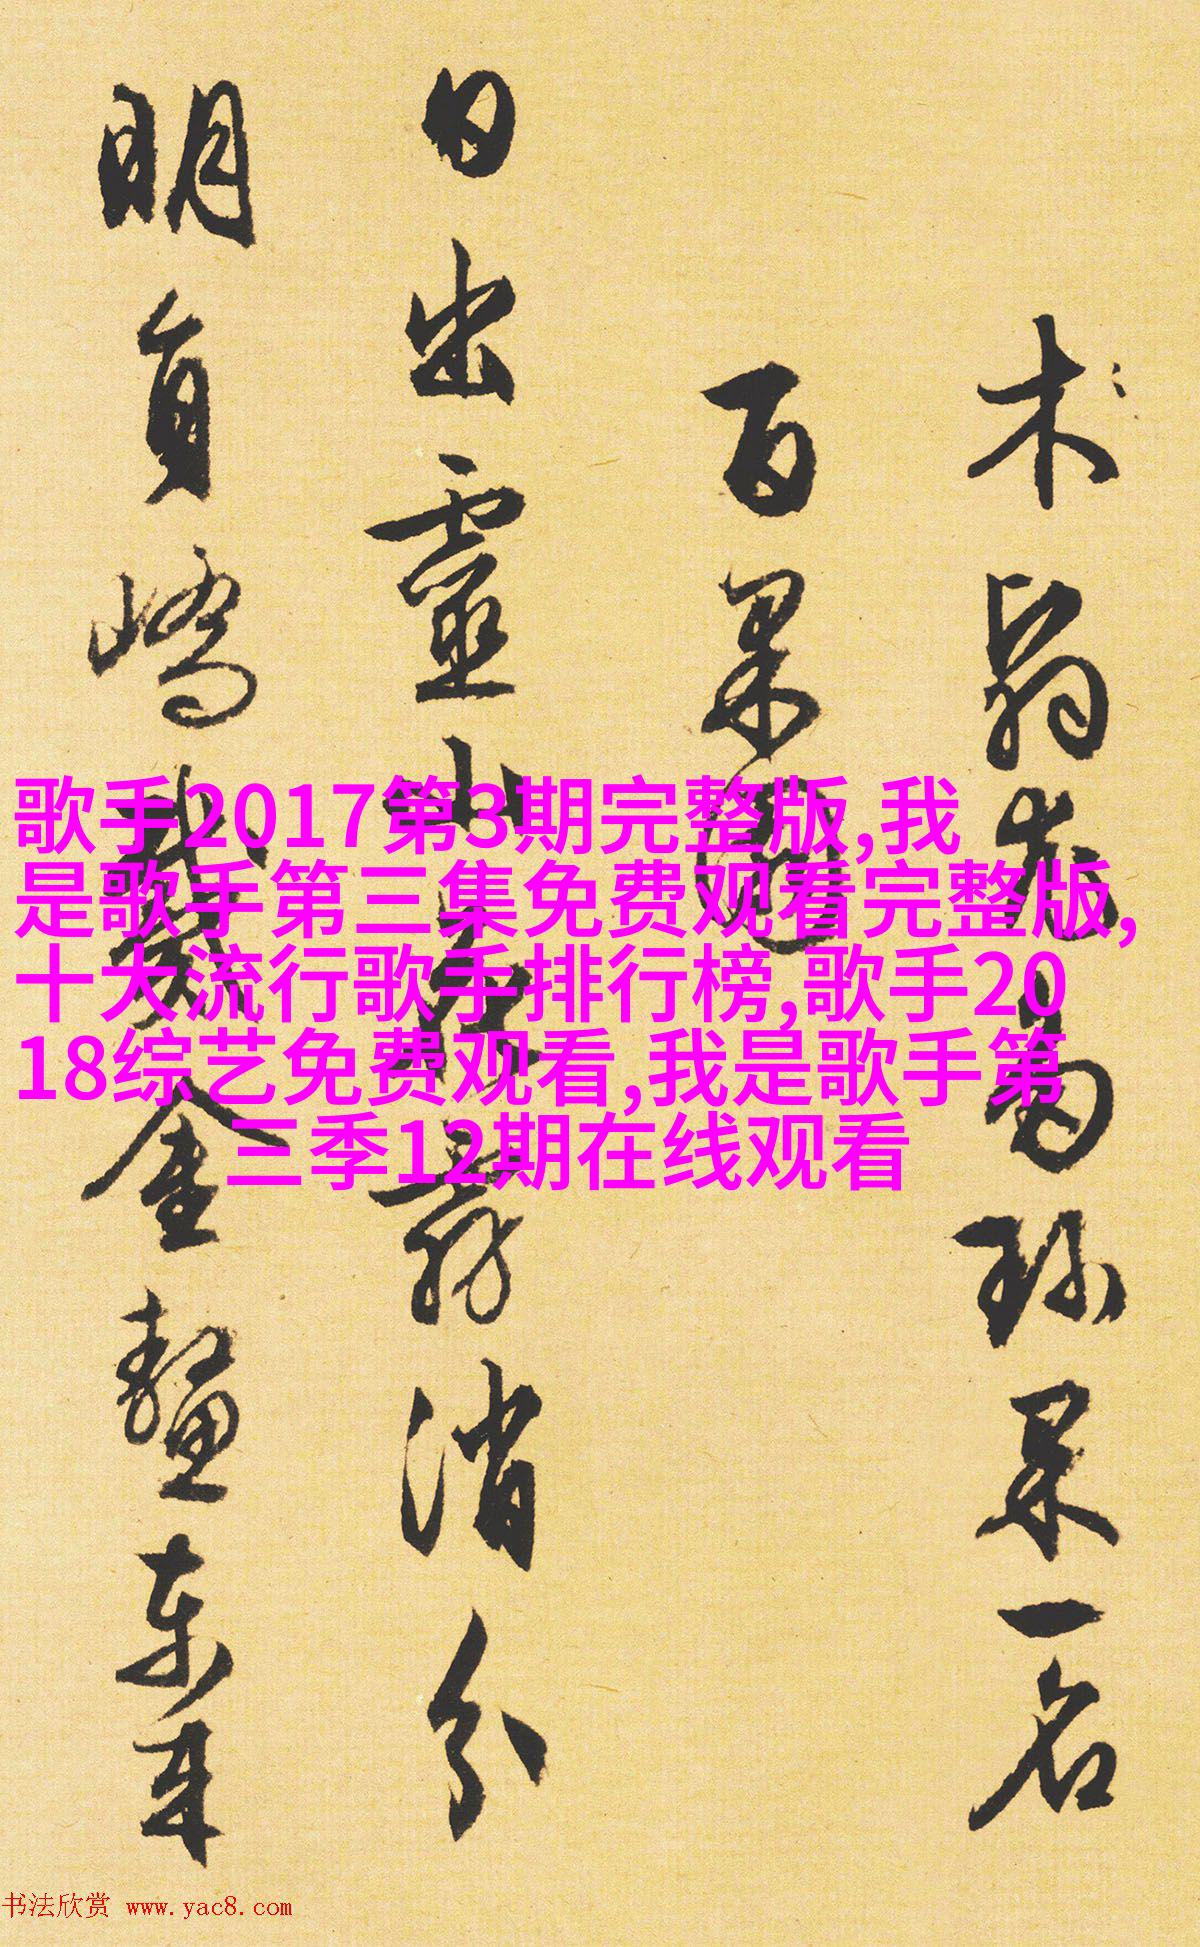 木鄰老爲珍果一名
百果
日出靈山霧消分
明員嶠戴金鼇東來
歌手2017第3期完整版,我
是歌手第三集免费观看完整版,
十大流行歌手排行榜,歌手20
18综艺免费观看,我是歌手第
三季12期在线观看
书法欣赏 www.yac8.com